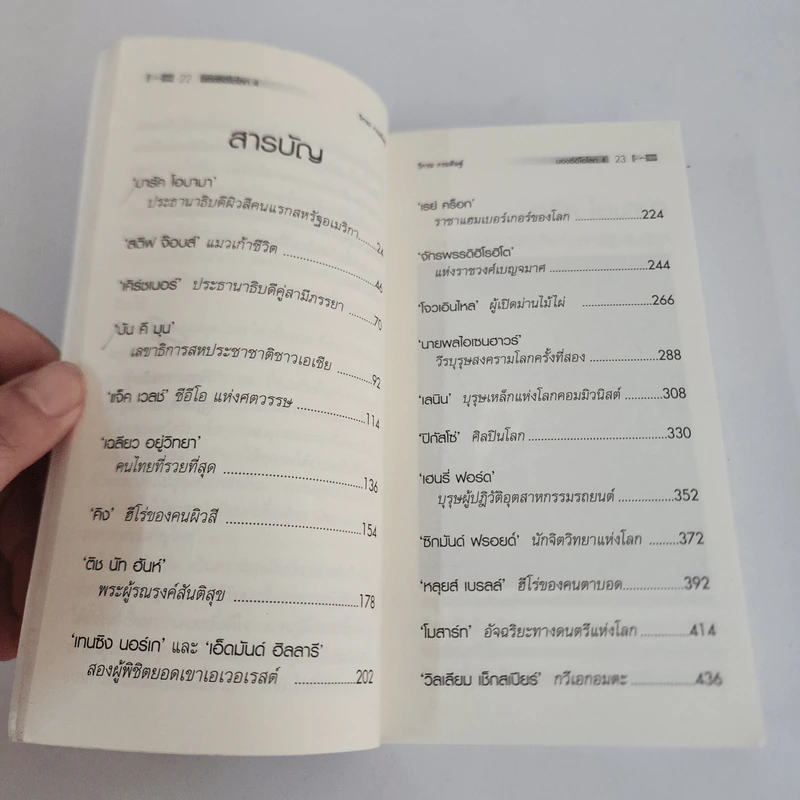 22
สารบัญ
'บารัค โอบามา'
ประธานาธิบดีผิวสีคนแรกสหรัฐอเมริกา.....24
'สตีฟ จ๊อบส์' แมวเก้าชีวิต ..................46
'เคิร์ชเนอร์' ประธานาธิบดีคู่สามีภรรยา .....70
'บัน คี มุน'
เลขาธิการสหประชาชาติชาวเอเชีย ......92
'แจ็ค เวลช์' ซีอีโอ แห่งศตวรรษ ..............114
'เฉลียว อยู่วิทยา'
คนไทยที่รวยที่สุด .........................136
'คิง' ฮีโร่ของคนผิวสี .........................154
'ติช นัท ฮันห์'
พระผู้รณรงค์สันติสุข .......................178
'เทนซิง นอร์เก' และ 'เอ็ดมันด์ ฮิลลารี'
สองผู้พิชิตยอดเขาเอเวอเรสต์ ............202
23
'เรย์ คร็อก'
ราชาแฮมเบอร์เกอร์ของโลก ...............224
'จักรพรรดิฮิโรฮิโต'
แห่งราชวงศ์เบญจมาศ ......................244
'โจวเอินไหล' ผู้เปิดม่านไม้ไผ่ ...............266
'นายพลไอเซนฮาวร์'
วีรบุรุษสงครามโลกครั้งที่สอง ..............288
'เลนิน' บุรุษเหล็กแห่งโลกคอมมิวนิสต์ ......308
'ปิกัสโซ่' ศิลปินโลก ..........................330
'เฮนรี่ ฟอร์ด'
บุรุษผู้ปฏิวัติอุตสาหกรรมรถยนต์ ..........352
'ซิกมันด์ ฟรอยด์' นักจิตวิทยาแห่งโลก .......372
'หลุยส์ เบรลล์' ฮีโร่ของคนตาบอด.............392
'โมสาร์ท' อัจฉริยะทางดนตรีแห่งโลก ..........414
'วิลเลียม เช็กสเปียร์' กวีเอกอมตะ .............436